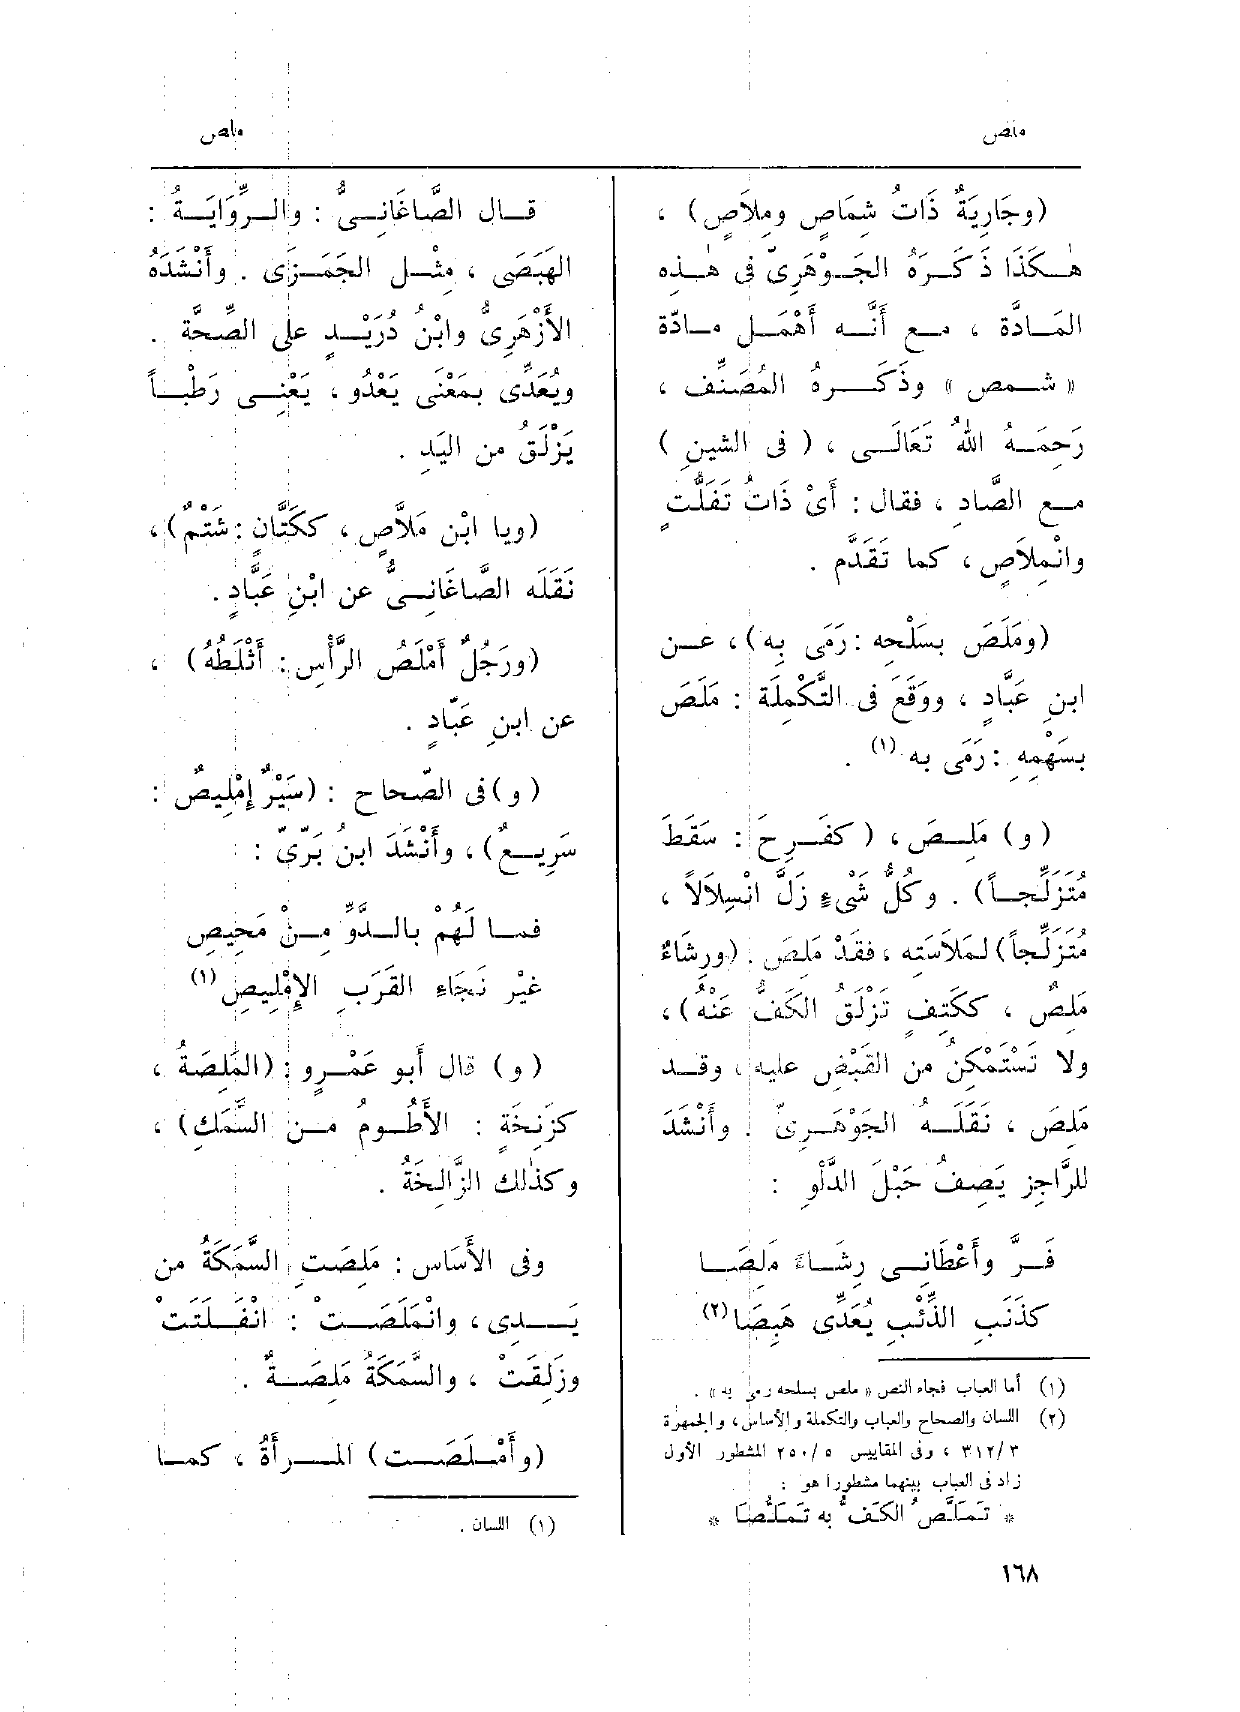 ملص
ملص
(وجَارِيَةٌ ذَاتُ شِمَاصٍ ومِلَاصٍ) ،
هٰكَذَا ذَكَرَهُ الجَوْهَرِىّ فى هٰذِه
المَادَّة ، مع أَنَّه أَهْمَل مادّة
« شمص » وذَكَرهُ المُصَنِّف ،
رَحِمَهُ اللهُ تَعَالَى ، ( فى الشينِ )
مع الصَّادِ ، فقال : أَىْ ذَاتُ تَفَلُّتٍ
وانْمِلَاصٍ ، كما تَقَدَّم .
(ومَلَصَ بسَلْحِه : رَمَى بِه) ، عن
ابنِ عَبَّادٍ ، ووَقَعَ فى التَّكْمِلَة : مَلَصَ
بسَهْمِهِ : رَمَى به (١) .
(و) مَلِصَ ، ( كفَرِحَ : سَقَطَ
مُتَزَلِّجاً) . وكُلُّ شَىْءٍ زَلَّ انْسِلَالاً ،
مُتَزَلِّجاً) لمَلَاسَتِه ، فقَدْ مَلِصَ . (ورِشَاءٌ
مَلِصٌ ، ككَتِفٍ تَزْلَقُ الكَفُّ عَنْهُ) ،
ولا تَسْتَمْكِنُ من القَبْضِ عليه ، وقد
مَلِصَ ، نَقَلَهُ الجَوْهَرِىّ . وأَنْشَدَ
للرَّاجِزِ يَصِفُ حَبْلَ الدَّلْوِ :
فَرَّ وأَعْطَانِى رِشَاءَ مَلِصَا
كذَنَبِ الذِّئْبِ يُعَدَّى هَبِصَا(٢)
(١) أما العباب فجاء النص « ملص بسلحه رمى به » .
(٢) اللسان والصحاح والعباب والتكملة والأساس ، والجمهرة
٣١٢/٣ ، وفى المقاييس ٢٥٠/٥ المشطور الأول
زاد فى العباب بينهما مشطورا هو :
* تَمَلَّصُ الكَفُّ به تَمَلُّصَا *
قال الصَّاغَانِىُّ : والرِّوَايَةُ :
الهَبَصَى ، مِثْل الجَمَزَى . وأَنْشَدَهُ
الأَزْهَرِىُّ وابْنُ دُرَيْدٍ على الصِّحَّة .
ويُعَدَّى بمَعْنَى يَعْدُو ، يَعْنِى رَطْباً
يَزْلَقُ من اليَدِ .
(ويا ابْن مَلَّاصٍ ، ككَتَّانٍ : شَتْمٌ) ،
نَقَلَه الصَّاغَانِىُّ عن ابْنِ عَبَّادٍ .
(ورَجُلٌ أَمْلَصُ الرَّأْسِ : أَثْلَطُهُ) ،
عن ابنِ عَبّادٍ .
(و) فى الصّحاح : (سَيْرٌ إِمْلِيصٌ :
سَرِيعٌ) ، وأَنْشَدَ ابنُ بَرِّىّ :
فما لَهُمْ بالدَّوِّ مِنْ مَحِيصِ
غيْر نَجَاءِ القَرَبِ الإِمْلِيصِ(١)
(و) قال أَبو عَمْرٍو : (المَلِصَةُ ،
كزَنِخَةٍ : الأَطُومُ من السَّمَكِ) ،
وكذٰلك الزَّالِخَةُ .
وفى الأَسَاس : مَلِصَتِ السَّمَكَةُ من
يَدِى ، وانْمَلَصَتْ : انْفَلَتَتْ
وزَلِقَتْ ، والسَّمَكَةُ مَلِصَةٌ .
(وأَمْلَصَت) المرأَةُ ، كما
(١) اللسان .
١٦٨